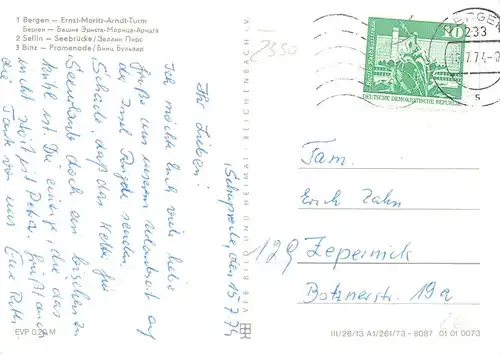 1 Bergen – Ernst-Moritz-Arndt-Turm
Берген – Башня Эрнста-Морица-Арндта
2 Sellin – Seebrücke / Зеллин Пирс
3 Binz – Promenade / Бинц Бульвар
Schaprode, den 15.7.74
Ihr Lieben!
Ich möchte Euch viele liebe
Grüße aus unserem Urlaubsort auf
der Insel Rügen senden.
Schade, daß das Wetter für
Seeurlaub doch ein bißchen zu
kühl ist. Die einzige, die das
nicht stört ist Petra. Grüßt auch
die Tante von uns Eure
EVP 0,20 M
VERLAG BILD UND HEIMAT REICHENBACH I. V.
2330
BERGEN
233
.7.74
s
10
DEUTSCHE DEMOKRATISCHE REPUBLIK
Fam.
Erich Zahn
129 Zepernick
Botznerstr. 19a
III/26/13 A1/261/73 - 8087 01 01 0073